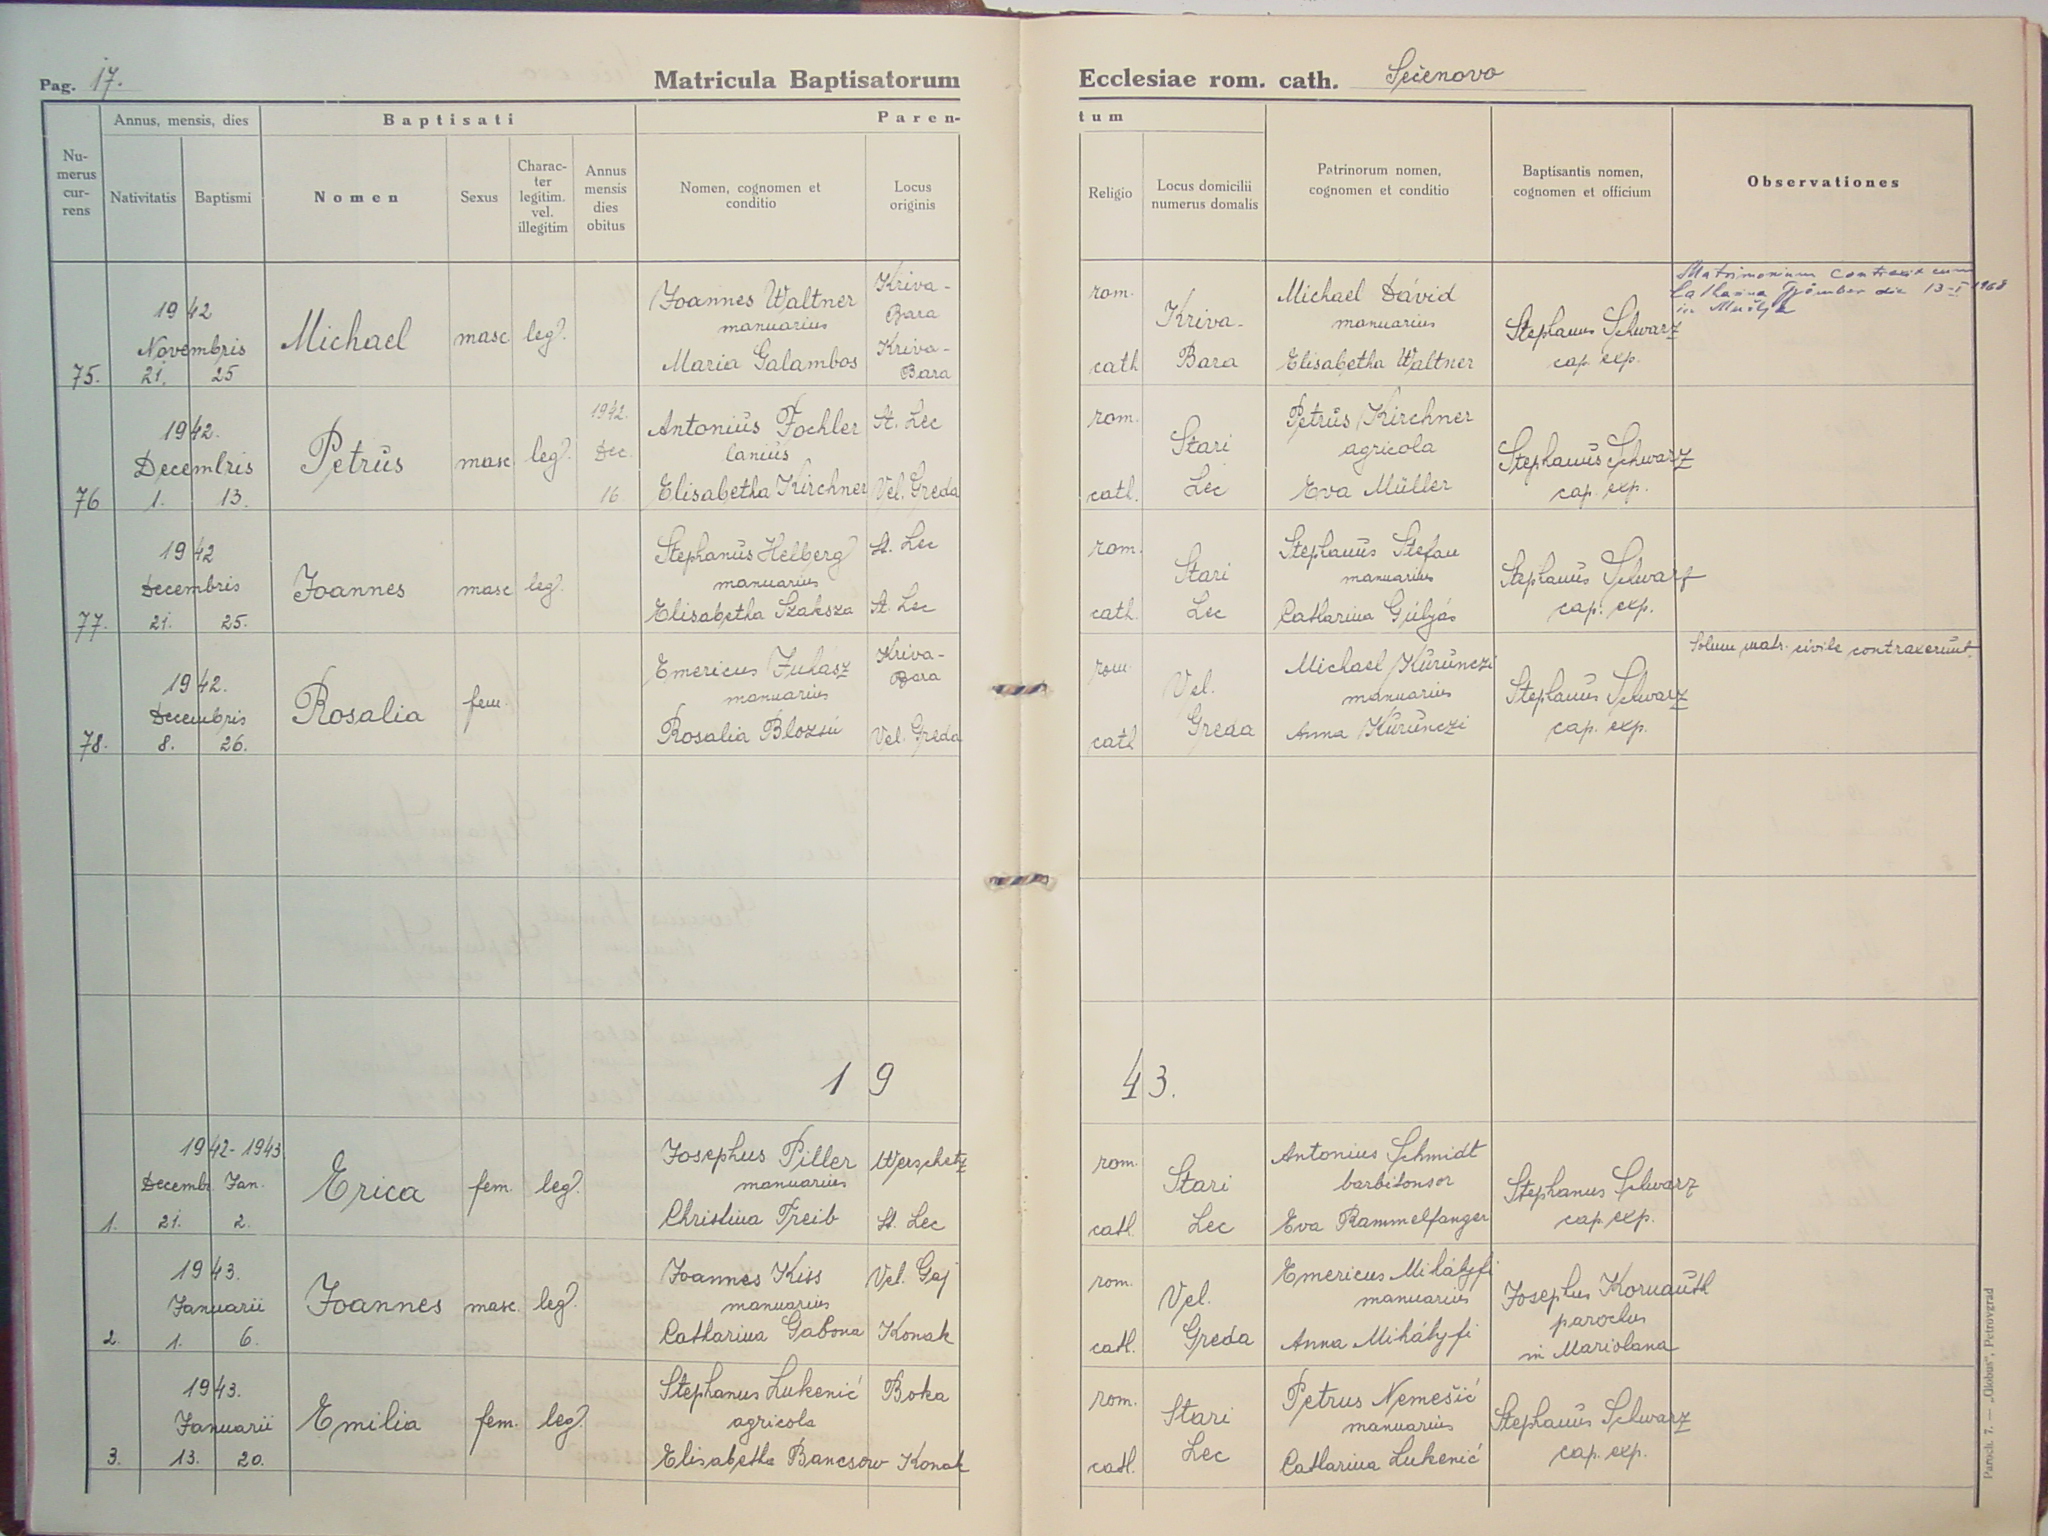 Pag. 17.
Matricula Baptisatorum
Ecclesiae rom. cath. Sečenovo
Numerus currens
Annus, mensis, dies
Nativitatis
Baptismi
Baptisati
Nomen
Sexus
Charac-
ter
legitim.
vel.
illegitim
Annus
mensis
dies
obitus
Paren-
tum
Nomen, cognomen et
conditio
Locus
originis
Religio
Locus domicilii
numerus domalis
Patrinorum nomen,
cognomen et conditio
Baptisantis nomen,
cognomen et officium
Observationes
75.
1942
Novembris
21. 25
Michael
masc
leg.
Joannes Waltner
manuarius
Maria Galambos
Kriva-
Bara
Kriva-
Bara
rom.
cath
Kriva-
Bara
Michael Dávid
manuarius
Elisabetha Waltner
Stephanus Schwarz
cap. exp.
Matrimonium contraxit cum
Catharina Gyömber die 13-I-1968
in Mužlja
76
1942.
Decembris
1. 13.
Petrus
masc
leg.
1942.
Dec.
16
Antonius Fochler
lanius
Elisabetha Kirchner
St. Lec
Vel. Greda
rom.
cath.
Stari
Lec
Petrus Kirchner
agricola
Eva Müller
Stephanus Schwarz
cap. exp.
77.
1942
Decembris
21. 25.
Joannes
masc
leg.
Stephanus Helberg
manuarius
Elisabetha Szaksza
St. Lec
St. Lec
rom.
cath.
Stari
Lec
Stephanus Stefan
manuarius
Catharina Gulyás
Stephanus Schwarz
cap. exp.
78.
1942.
Decembris
8. 26.
Rosalia
fem.
Emericus Juhász
manuarius
Rosalia Blozsú
Kriva-
Bara
Vel. Greda
rom.
cath
Vel.
Greda
Michael Kürünczi
manuarius
Anna Kürünczi
Stephanus Schwarz
cap. exp.
Solum matr. civile contraxerunt.
1943.
1.
1942-1943
Decembr. Jan.
21. 2.
Erica
fem.
leg.
Josephus Piller
manuarius
Christina Treib
Werschetz
St. Lec
rom.
cath.
Stari
Lec
Antonius Schmidt
barbitonsor
Eva Rammelfanger
Stephanus Schwarz
cap. exp.
2.
1943.
Januarii
1. 6.
Joannes
masc.
leg.
Joannes Kiss
manuarius
Catharina Gabona
Vel. Gaj
Konak
rom.
cath.
Vel.
Greda
Emericus Mihályfi
manuarius
Anna Mihályfi
Josephus Kornauth
parochus
in Mariolana
3.
1943.
Januarii
13. 20.
Emilia
fem.
leg.
Stephanus Lukenić
agricola
Elisabetha Bancsow
Boka
Konak
rom.
cath.
Stari
Lec
Petrus Nemešić
manuarius
Catharina Lukenić
Stephanus Schwarz
cap. exp.
Paroch. 7. — „Globus“, Petrovgrad